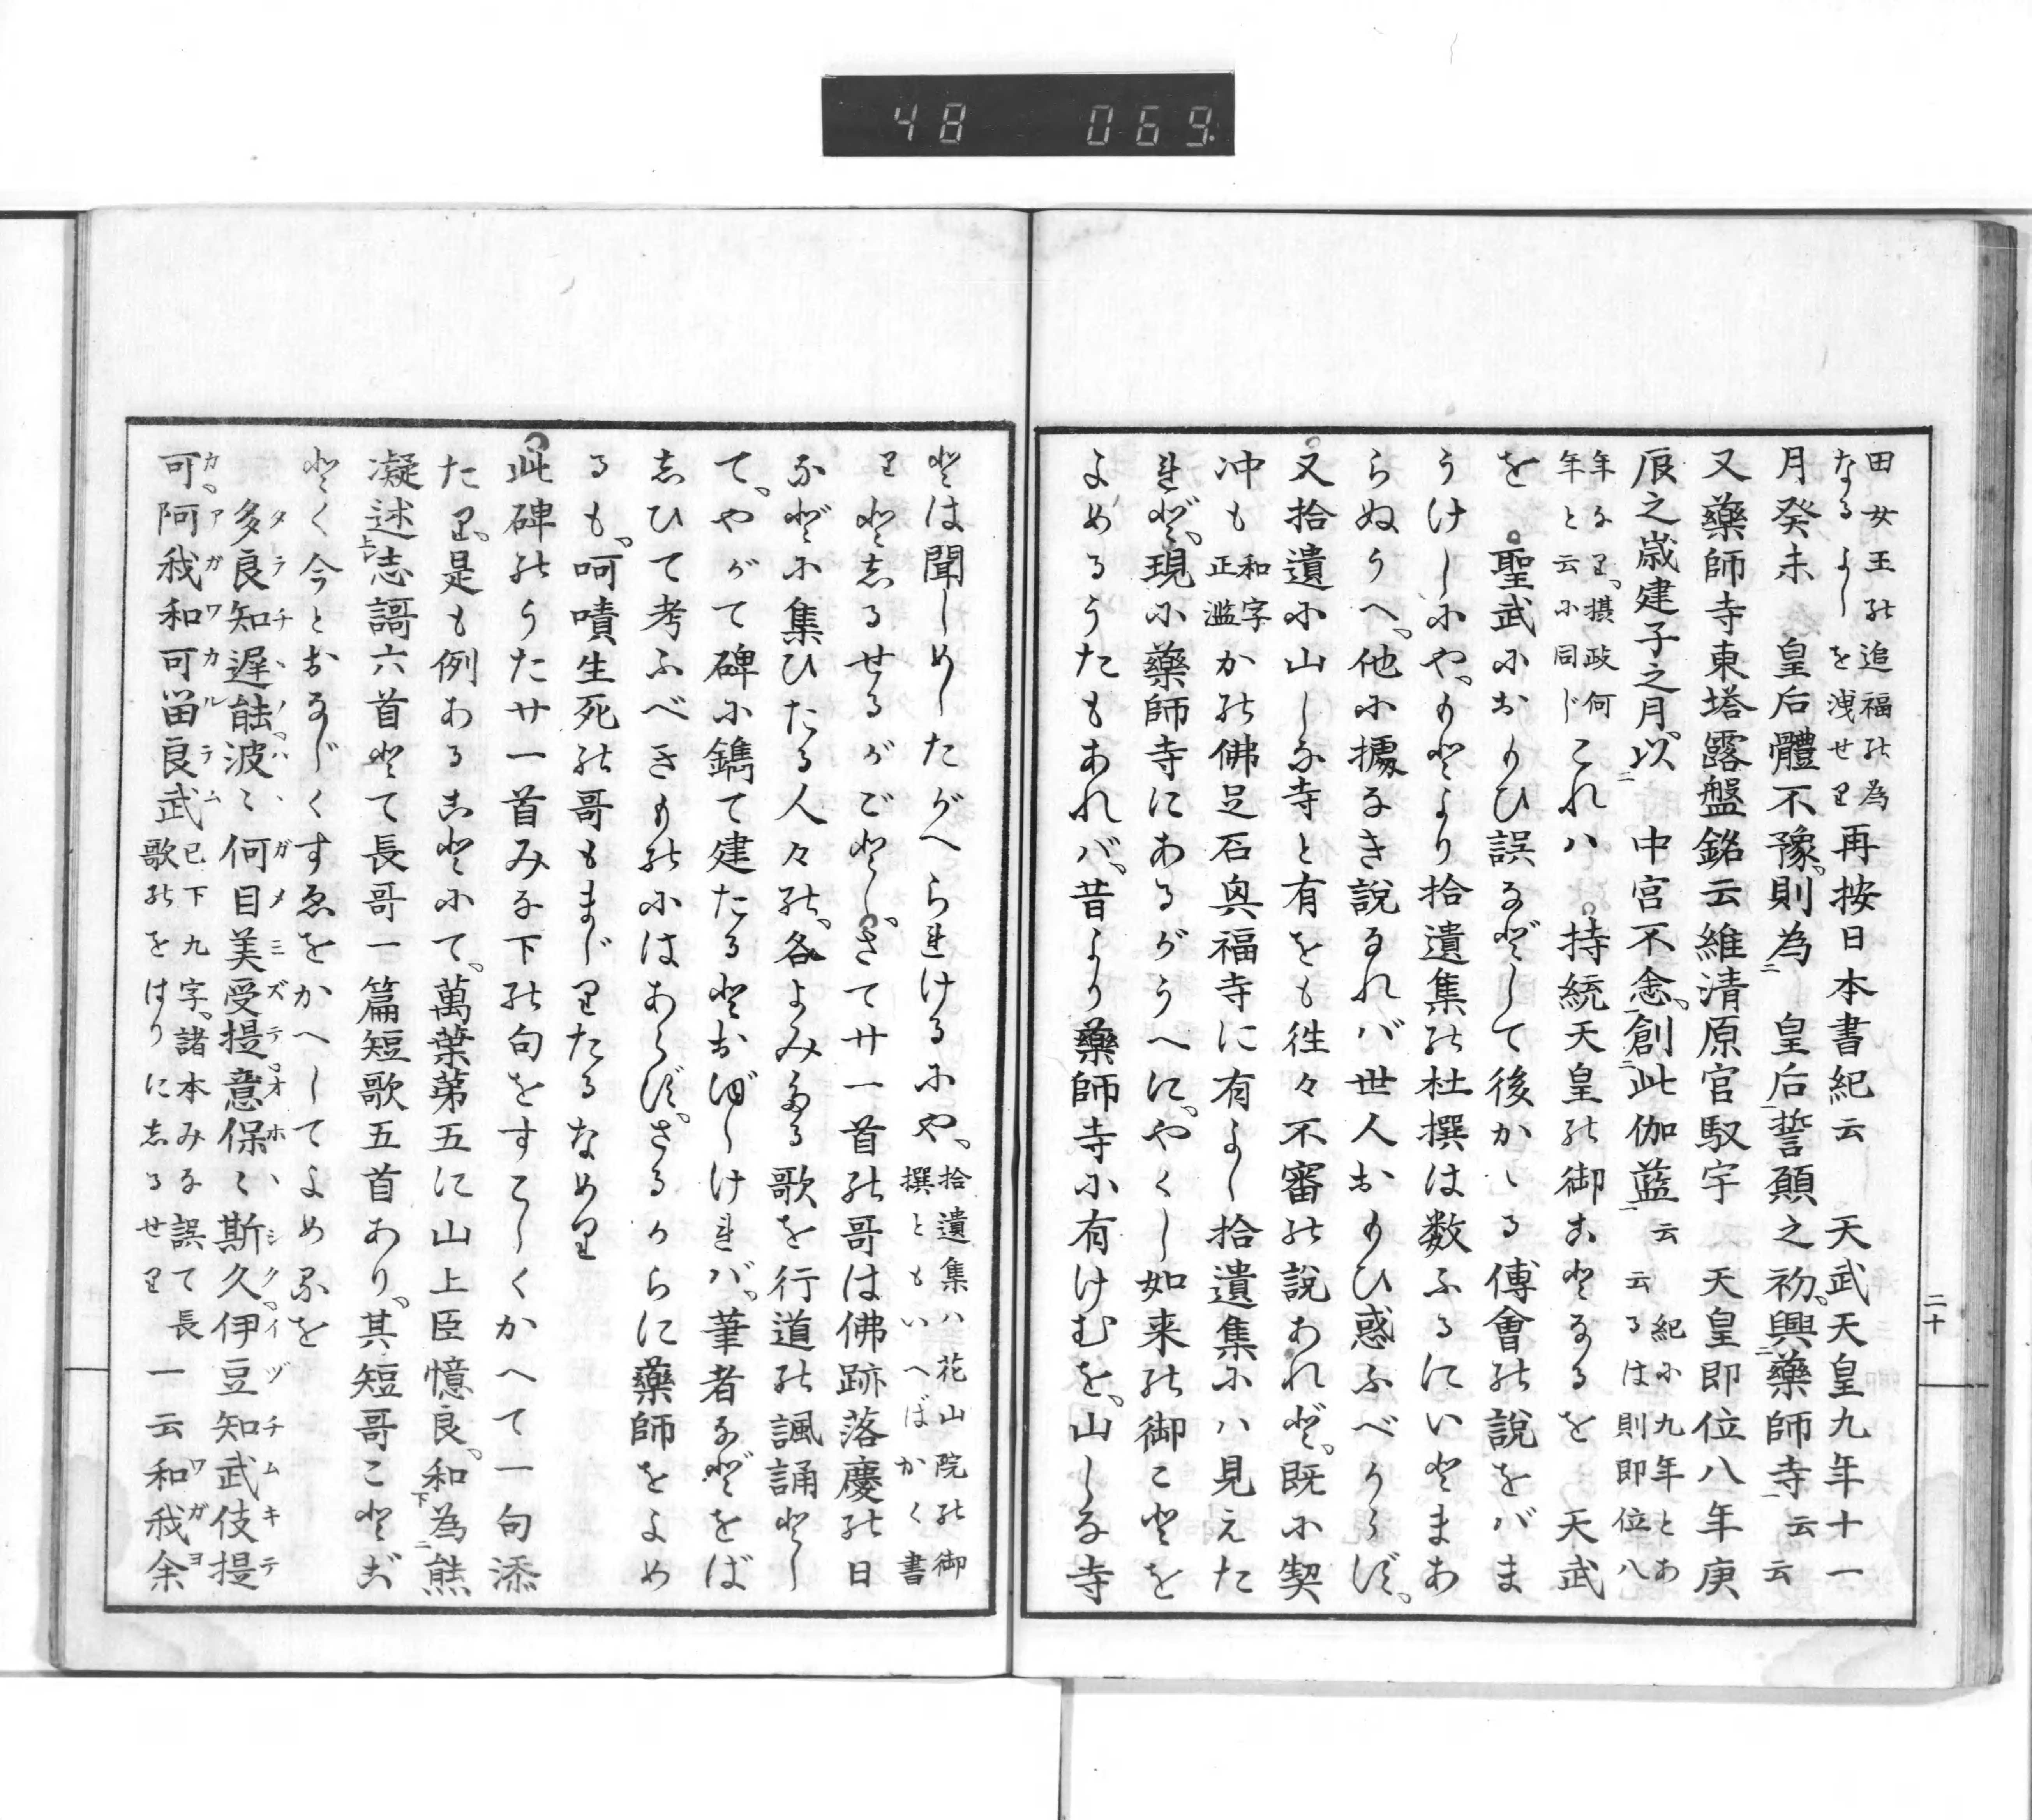 48 069.
田女王の追福の為
なるよしを洩せり再按日本書紀云 天武天皇九年十一
月癸未 皇后體不豫。則為二 皇后一誓願之初。興二藥師寺一云云
又藥師寺東塔露盤銘云維清原宮馭宇 天皇即位八年庚
辰之歳建子之月。以二 中宮不悆。創二此伽藍一云云 紀に九年とあるは則即位八
年なり。摂政何年と云に同じこれハ 持統天皇の御ことなるを 天武
を 聖武におもひ誤るなどして後かゝる傅會の說をバま
うけしにや。もとより拾遺集の杜撰は数ふるにいとまあ
らぬうへ。他に據なき説なれバ世人おもひ惑ふべからず。
又拾遺に山しな寺と有をも徃々不審の説あれど。既に契
冲も 和字正濫 かの佛足石奥福寺に有よし拾遺集にハ見えた
れど。現に藥師寺にあるがうへに。やくし如来の御ことを
よめるうたもあれバ。昔より藥師寺に有けむを。山しな寺
二十
とは聞しめしたがへられけるにや。拾遺集ハ花山院の御撰ともいへばかく書
りとしるせるがごとし。さて廿一首の哥は佛跡落慶の日
などに集ひたる人々の。各よみたる歌を行道の諷誦とし
て。やがて碑に鐫て建たるとおぼしけれバ。筆者などをば
しひて考ふべきものにはあらず。さるからに藥師をよめ
るも。呵嘖生死の哥もまじりたるなめり
此碑のうた廿一首みな下の句をすこしくかへて一句添
たり。是も例あることにて。萬葉苐五に山上臣憶良。和下為二熊
凝述上志謌六首とて長哥一篇短歌五首あり。其短哥ことご
とく今とおなじくすゑをかへしてよめるを
多良知遅能波ゝ何目美受提意保ゝ斯久伊豆知武伎提
タラチヽノ。ハヽガメミズテ。オホヽシク。イヅチムキテ
可。阿我和可畄良武 已下九字。諸本みな誤て長歌のをはりにしるせり 一云和我余
カ。アガワカルラム ワガヨ